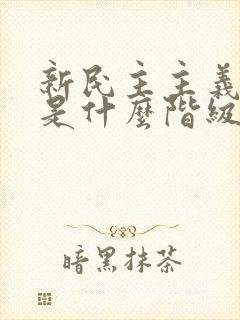 新民主主義
是什麼階級
暗黑抹茶